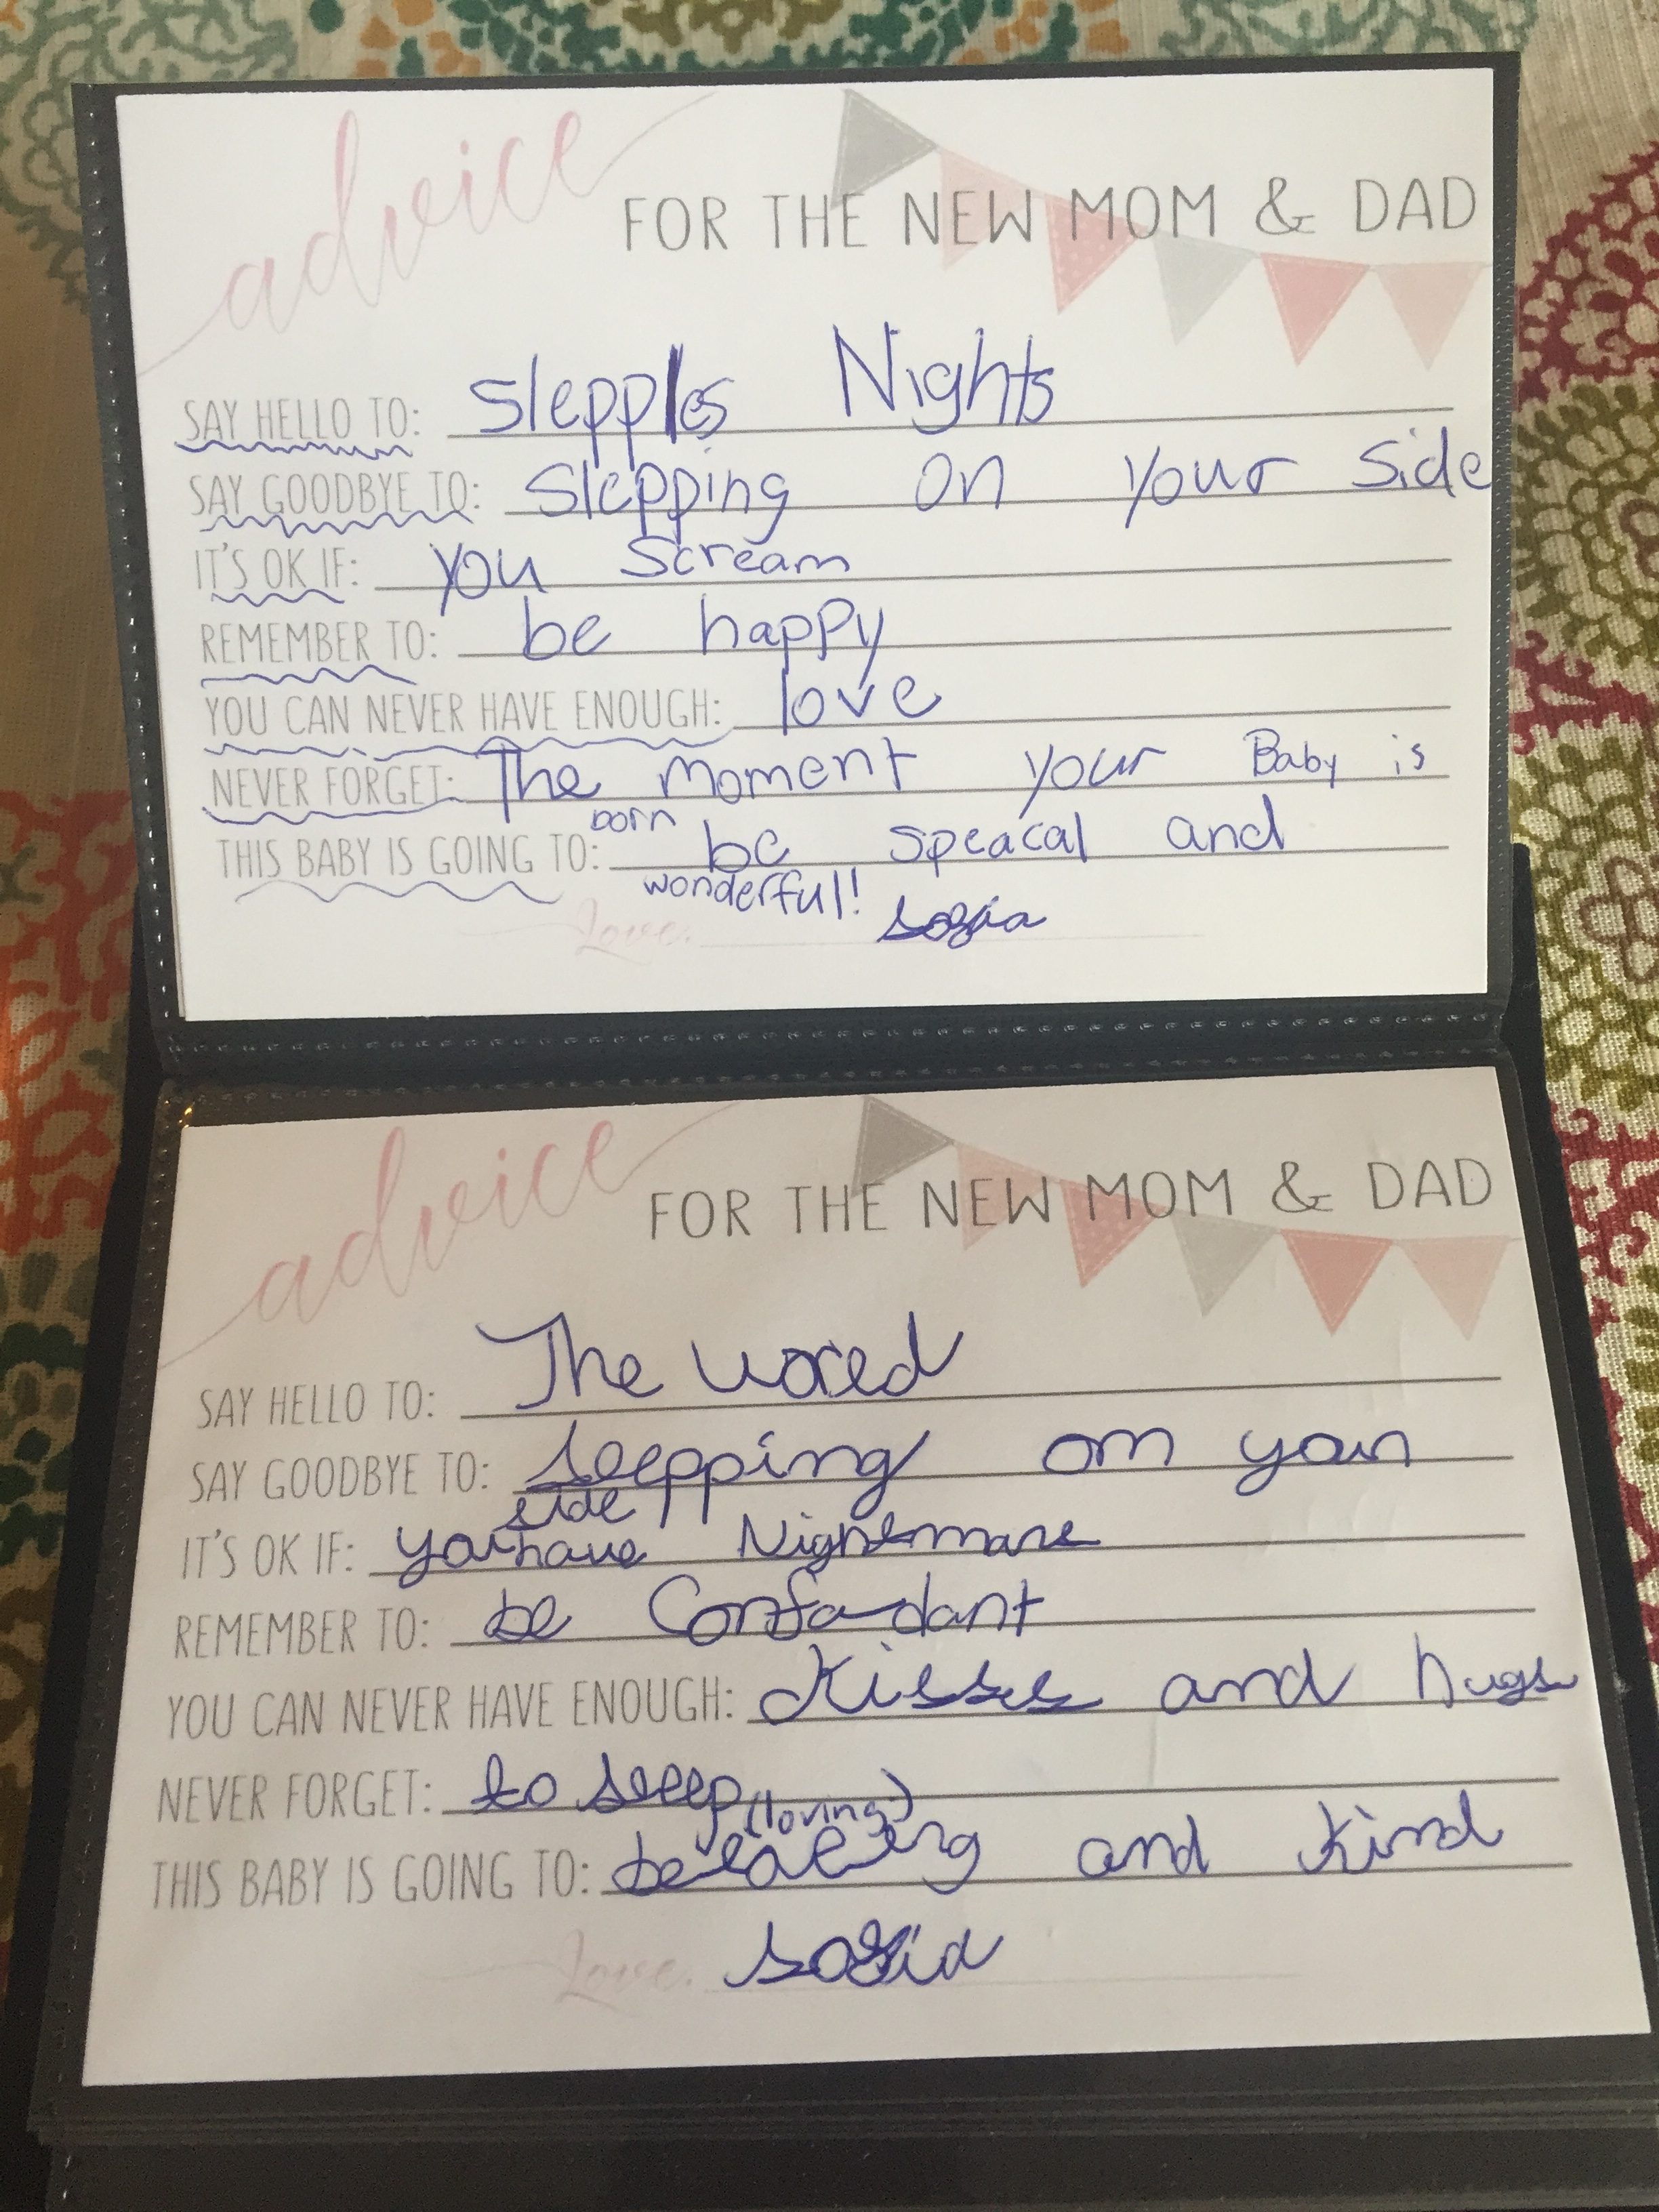 advice
FOR THE NEW MOM & DAD
SAY HELLO TO: Slepples Nights
SAY GOODBYE TO: Slepping on your side
IT'S OK IF: you Scream
REMEMBER TO: be happy
YOU CAN NEVER HAVE ENOUGH: love
NEVER FORGET: The moment your Baby is
born
THIS BABY IS GOING TO: be speacal and
wonderful!
Love,
advice
FOR THE NEW MOM & DAD
SAY HELLO TO: The
SAY GOODBYE TO: sleepping on your
side
IT'S OK IF: you have
REMEMBER TO: be
YOU CAN NEVER HAVE ENOUGH: Kisses and hugs
NEVER FORGET: to sleep
(loving)
THIS BABY IS GOING TO: be and kind
Love,